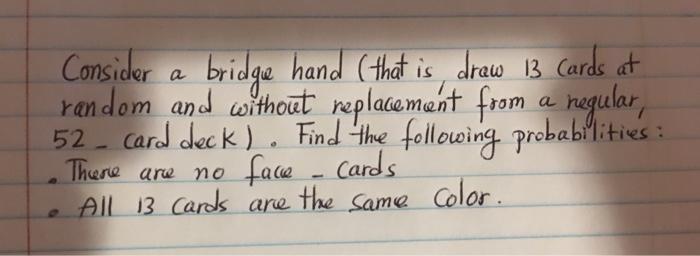 Consider a bridge hand (that is, draw 13 cards at
random and without replacement from a regular,
52 - card deck). Find the following probabilities:
• There are no face - cards
• All 13 cards are the same color.